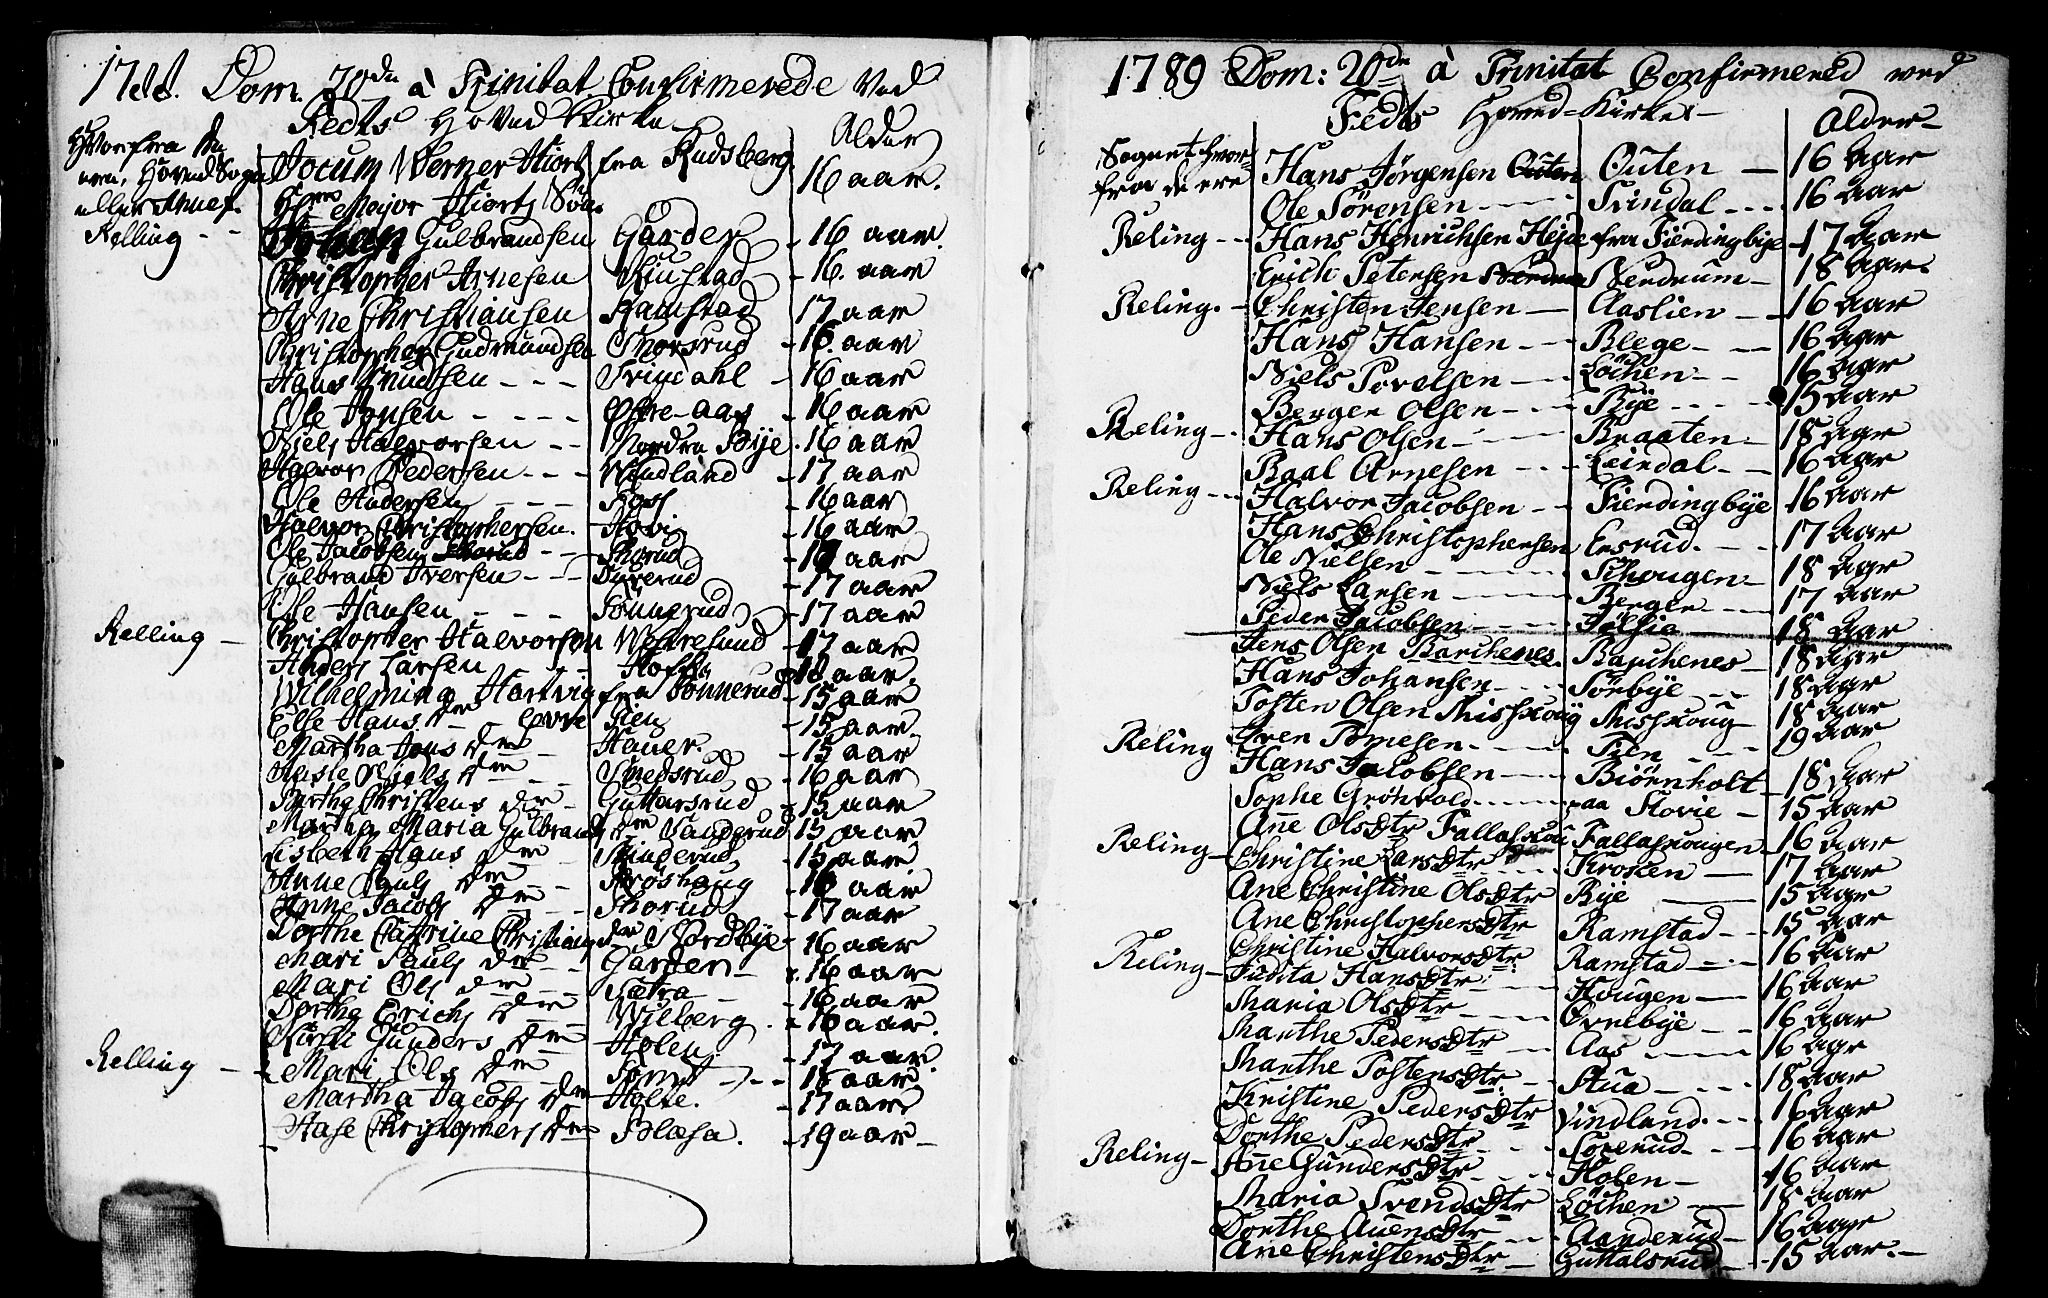 1788. Dom. 20de à Trinitat Confirmerede Ved
Fedts Hoved Kirke
Hvorfra de
ere, Hoved Sogn
eller Annex.
Alder
Jocum Werner Hiort fra Rudsberg. 16 aar.
Hrr Major Hiorts Søn.
Relling - - Johan Gulbrandsen Garder - 16 aar.
Christopher Arnesen - 16. aar
Arne Christiansen Ramstad 17 aar
Christopher Gudmundsen - 16. aar
Hans Knudsen - - - Svindahl - 16 aar
Ole Jensen - - - - Østre-Aas - 16 aar
Niels Halvorsen - - Nordre Bye. 16 aar
Halvor Pedersen - - - Vindland - 17 aar
Ole Andersen - - - - 16 aar
Halvor Christophersen. Hovi - 16 aar
Ole Jacobsen - - Skorud - aar
Gulbrand Iversen - - - Dyrerud - 17 aar
Ole Hansen - - - - Tönnerud - 17 aar
Relling - Christopher Halvorsen - 17 aar
Anders Larsen - - 18 aar.
Wilhelmina Hartvig fra Tönnerud - 15 aar
Else Hans dtr - 15 aar.
Martha Jens dtr - Hauer. - 15 aar
Niels dtr - - Smedsrud - 16 aar
Berthe Christens dtr - Guttersrud - 15 aar
Martha Maria Gulbrands dtr Sandsrud 15 aar
Lisbeth Hans dtr - 15 aar
Anne Pouls dtr - Bröshaug - 16 aar
Anne Jacobs dtr - - Skorud - 17 aar
Dorthe Cathrine Christians dtr Nordbye - 16 aar
Mari Pouls dtr - - Garder - 16 aar
Mari Ols dtr - - Sætra - 16 aar
Dorthe Erichs dtr - Wieberg. - 16 aar.
Gunders dtr Holen. - 17 aar
Relling - - Mari Ols dtr - 15 aar
Martha Jacobs dtr Holte. - 17 aar
Aase Christophers dtr Blæsa. - 19 aar -
1789 Dom: 20de à Trinitat Confirmered ved
Fedts Hoved-Kirke -
Sognet hvor-
fra de ere
Alder -
Hans Jørgensen Outen - 16 Aar
Ole Sørensen - - - Svindal - - - 16 Aar
Reling - - - Hans Henrichsen Hejde fra Fierdingbye - 17 Aar
Erich Petersen Nerdrum - 18 Aar.
Reling. - Christen Jensen - Aaslien - - 16 Aar
Hans Hansen - - Blege - - 16 Aar
Niels Povelsen - - Løchen - - 16 Aar
Berger Olsen - - - Bye - - - - 15 Aar
Reling - Hans Olsen - - - Braaten - 18 Aar
Baal Arnesen - - - Leindal - - 16 Aar
Reling - - - Halvor Jacobsen - - Fierdingbye 16 Aar
Hans Christophersen Ensrud. - - - 17 Aar
Ole Nielsen - - - Schougen - 18 Aar
Niels Larsen - - - Berger - - - 17 Aar
Peder Jacobsen - - - Jølsia - 18 Aar
Jens Olsen Barchenes Barchenes - 18 Aar
Hans Johansen - - - Sørbye - - 18 Aar
Tosten Olsen Misskoug - 18 Aar
Reling Iver - - - Tien - - - 19 Aar
Hans Jacobsen - - Biørnholt - 18 Aar
Sophe Grønvold - - - paa Hovie - 15 Aar
Reling - Ane Olsdtr Fallaskougen - 16 Aar
Christine Larsdtr - - - Krosen - 17 Aar
Ane Christine Olsdtr Bye - 15 Aar
Ane Christophersdtr Ramstad - - 15 Aar
Christine Halvorsdtr Ramstad - - 16 Aar
Reling - Judita Hansdtr - - Hougen - 16 Aar
Maria Olsdtr - - - Øvrebye - - 16 Aar
Marthe Pedersdtr - Aas - - - 16 Aar
Marthe Tostensdtr - - Stua - - - - 18 Aar
Kristine Pedersdtr Vindland. - - - 16 Aar
Dorthe Pedersdtr - - - Sørerud - - - 16 Aar
Reling - Ane Gundersdtr - - - Holen - 16 Aar
Maria Svendsdtr Løchen - 18 Aar
Dorthe Auensdtr - - - Aanderud - 16 Aar
Ane Christensdtr - Guttalsrud - - 15 Aar. -